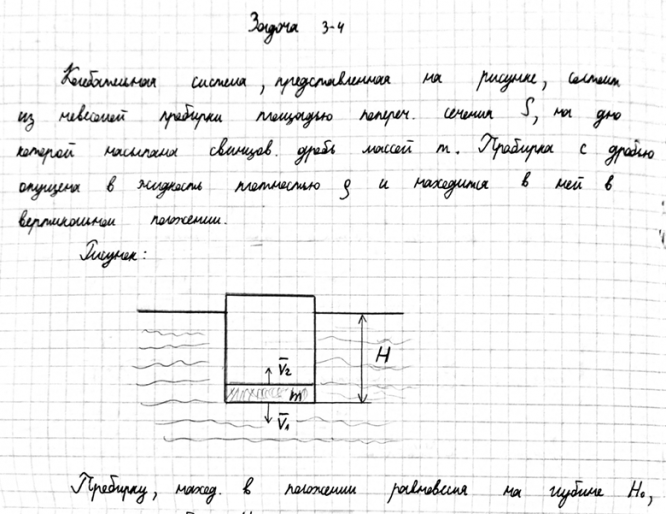 Задача 3-4
Колебательная система, представленная на рисунке, состоит
из невесомой пробирки площадью попереч. сечения S, на дно
которой насыпана свинцов. дробь массой m. Пробирка с дробью
опущена в жидкость плотностью ρ и находится в ней в
вертикальном положении.
Рисунок:
H
V̅₂
m
V̅₁
Пробирку, наход. в положении равновесия на глубине H₀,